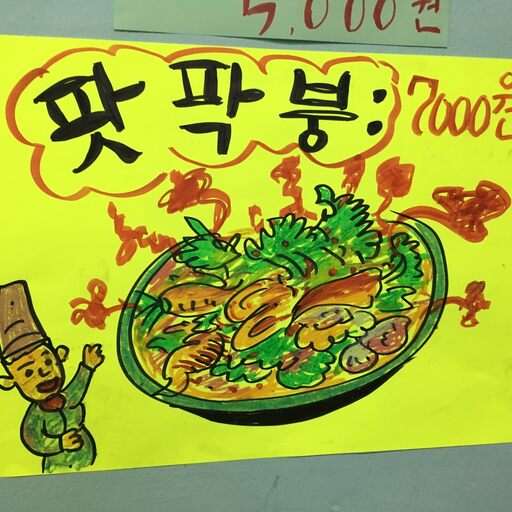 5,000원
팟팍붕: 7000원